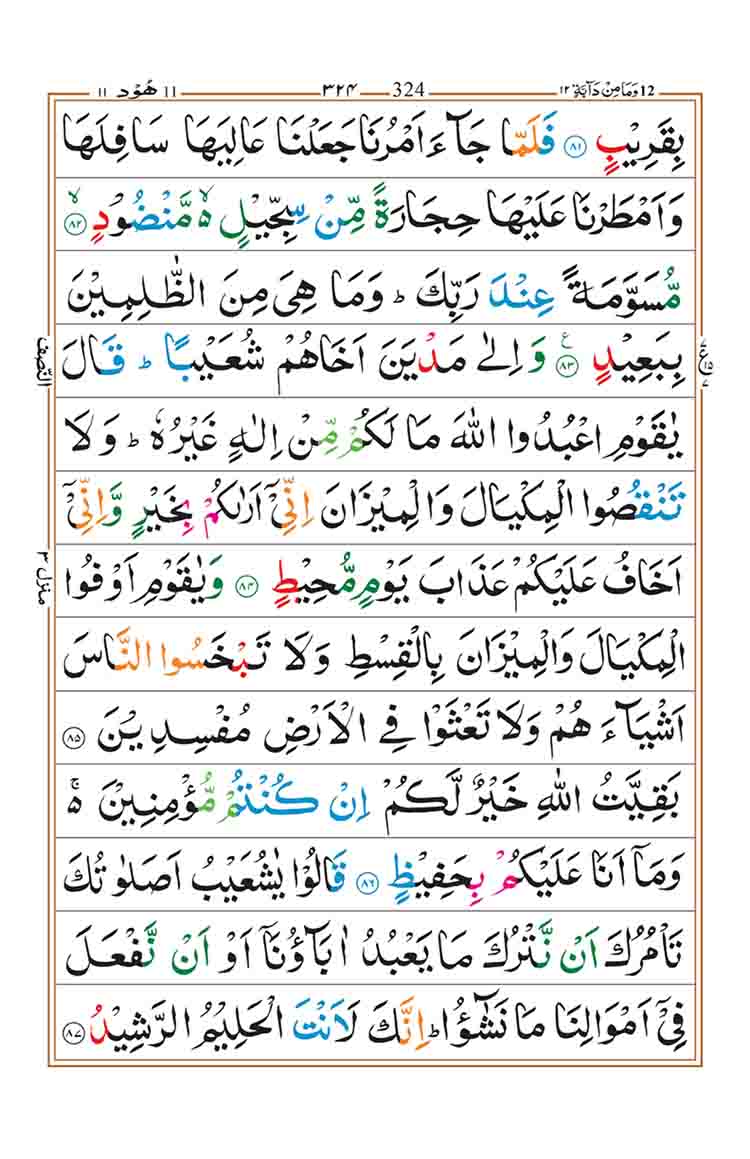 12 وَمَا مِنْ دَآبَّةٍ ١٢ 324 ٣٢٤ 11 هُوْد ١١
بِقَرِيْبٍ ﴿٨١﴾ فَلَمَّا جَآءَ اَمْرُنَا جَعَلْنَا عَالِيَهَا سَافِلَهَا
وَاَمْطَرْنَا عَلَيْهَا حِجَارَةً مِّنْ سِجِّيْلٍ ۙ۬ مَّنْضُوْدٍ ۙ﴿٨٢﴾
مُّسَوَّمَةً عِنْدَ رَبِّكَ ؕ وَمَا هِىَ مِنَ الظّٰلِمِيْنَ
بِبَعِيْدٍ ﴿٨٣﴾ ع وَاِلٰى مَدْيَنَ اَخَاهُمْ شُعَيْبًا ؕ قَالَ
يٰقَوْمِ اعْبُدُوا اللّٰهَ مَا لَكُمْ مِّنْ اِلٰهٍ غَيْرُهٗ ؕ وَلَا
تَنْقُصُوا الْمِكْيَالَ وَالْمِيْزَانَ اِنِّىْۤ اَرٰٮكُمْ بِخَيْرٍ وَّاِنِّىْۤ
اَخَافُ عَلَيْكُمْ عَذَابَ يَوْمٍ مُّحِيْطٍ ﴿٨٤﴾ وَيٰقَوْمِ اَوْفُوا
الْمِكْيَالَ وَالْمِيْزَانَ بِالْقِسْطِ وَلَا تَبْخَسُوا النَّاسَ
اَشْيَآءَ هُمْ وَلَا تَعْثَوْا فِى الْاَرْضِ مُفْسِدِيْنَ ﴿٨٥﴾
بَقِيَّتُ اللّٰهِ خَيْرٌ لَّكُمْ اِنْ كُنْتُمْ مُّؤْمِنِيْنَ ۚ۬
وَمَاۤ اَنَا عَلَيْكُمْ بِحَفِيْظٍ ﴿٨٦﴾ قَالُوْا يٰشُعَيْبُ اَصَلٰوتُكَ
تَاْمُرُكَ اَنْ نَّتْرُكَ مَا يَعْبُدُ اٰبَآؤُنَاۤ اَوْ اَنْ نَّفْعَلَ
فِىْۤ اَمْوَالِنَا مَا نَشٰٓؤُا ؕ اِنَّكَ لَاَنْتَ الْحَلِيْمُ الرَّشِيْدُ ﴿٨٧﴾
النّصف
منزل ٣